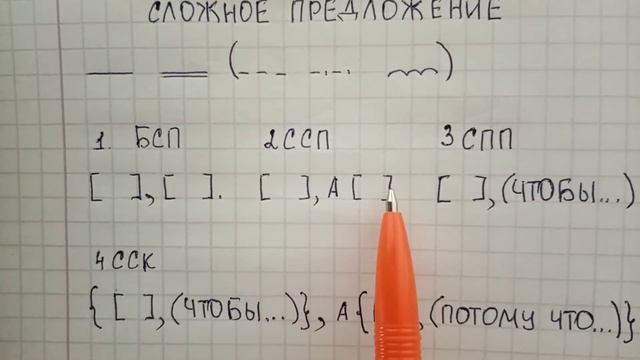 СЛОЖНОЕ ПРЕДЛОЖЕНИЕ
1. БСП 2 ССП 3 СПП
[ ], [ ]. [ ], А [ ] [ ], (ЧТОБЫ...)
4 ССК
{ [ ], (ЧТОБЫ...)}, А { [ ], (ПОТОМУ ЧТО...)}